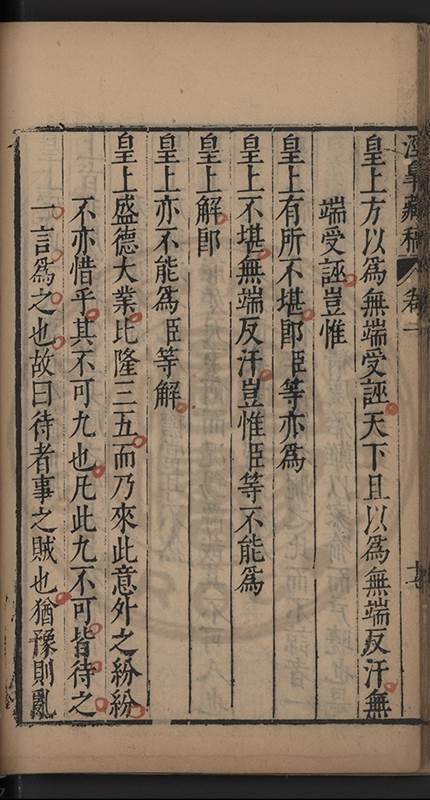 涇臯藏稿
卷一
十七
皇上方以爲無端受誣天下且以爲無端反汗無
端受誣豈惟
皇上有所不堪卽臣等亦爲
皇上不堪無端反汗豈惟臣等不能爲
皇上解卽
皇上亦不能爲臣等解
皇上盛德大業比隆三五而乃來此意外之紛紛
不亦惜乎其不可九也凡此九不可皆待之
一言爲之也故曰待者事之賊也猶豫則亂